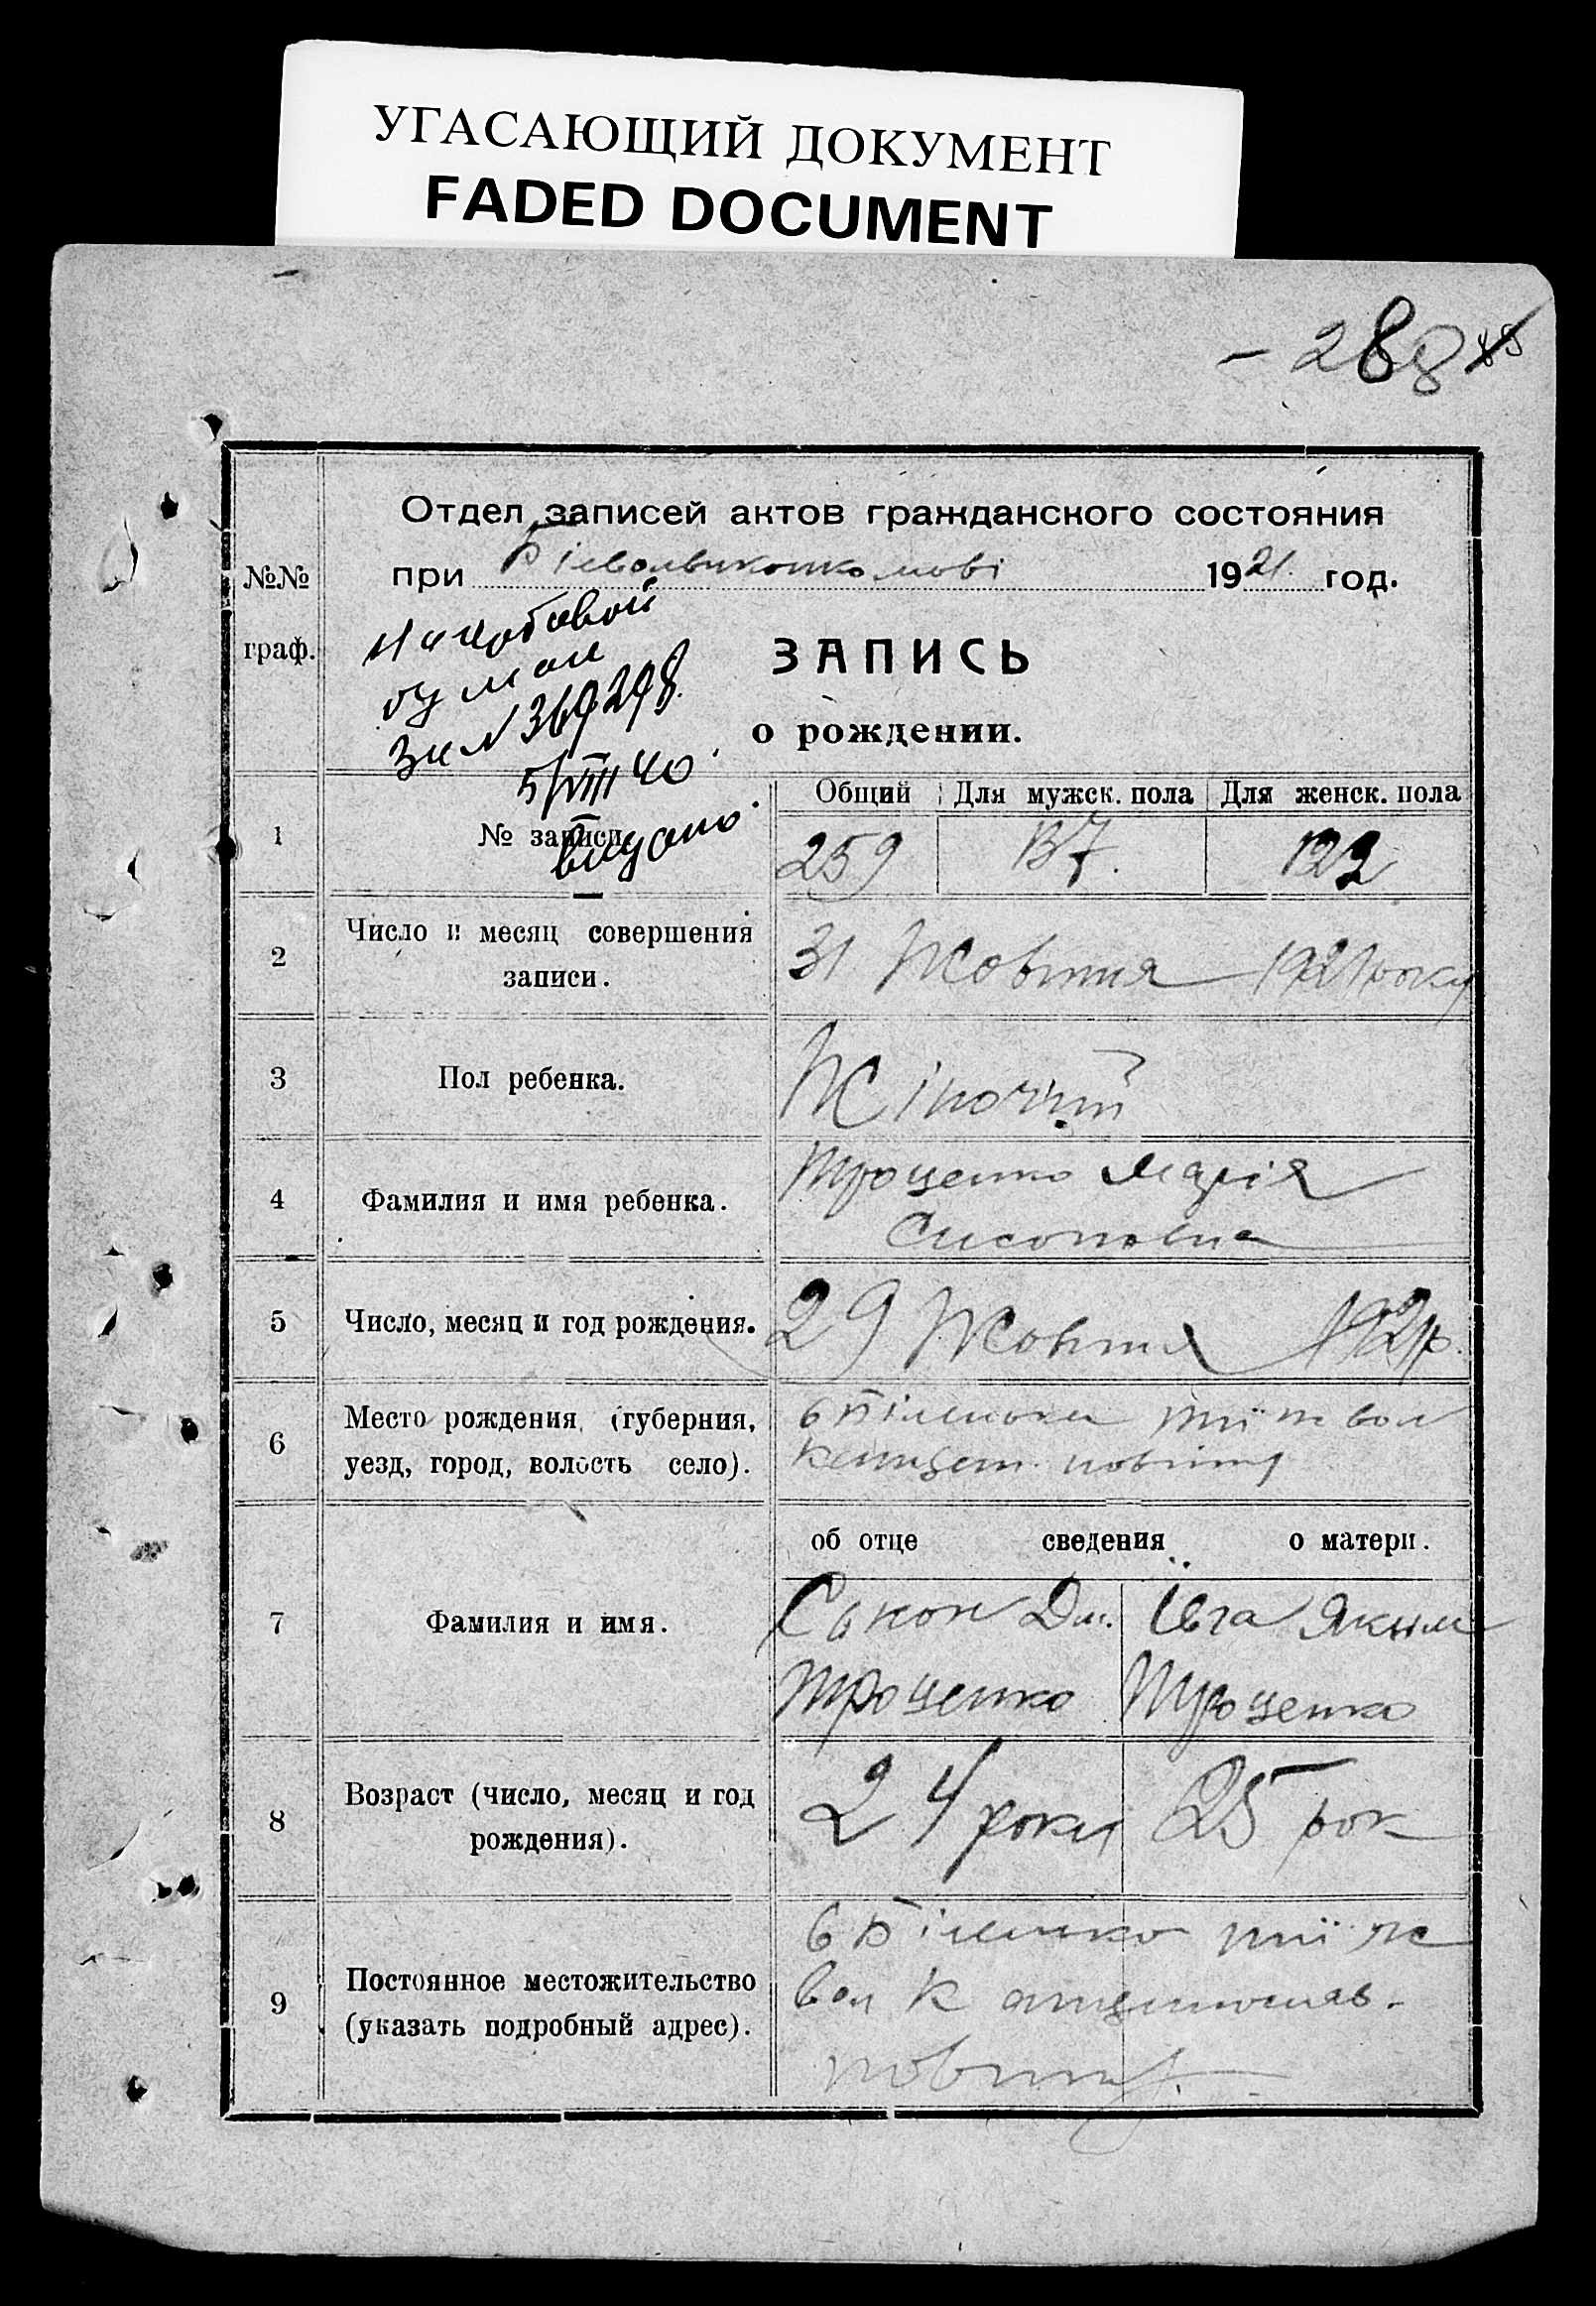 УГАСАЮЩИЙ ДОКУМЕНТ
FADED DOCUMENT
- 288
Отдел записей актов гражданского состояния
№№ граф.
при Білволвиконкомові 1921 год.
ЗАПИСЬ
о рождении.
за № 369298.
5/VIII 40
видано
Общий Для мужск. пола Для женск. пола
1 № записи 259 137. 122
2 Число и месяц совершения записи. 31 Жовтня 1921 року
3 Пол ребенка. Жіночий
4 Фамилия и имя ребенка. Троценко Марія
Сисоповна
5 Число, месяц и год рождения. 29 Жовтня 1921р.
6 Место рождения (губерния,
уезд, город, волость село).
тії ж вол
повіту
об отце сведения о матери.
7 Фамилия и имя.
Троценко Троценко
8 Возраст (число, месяц и год
рождения).
24 роки 25 рок
9 Постоянное местожительство
(указать подробный адрес).
тії ж
вол
повіту.